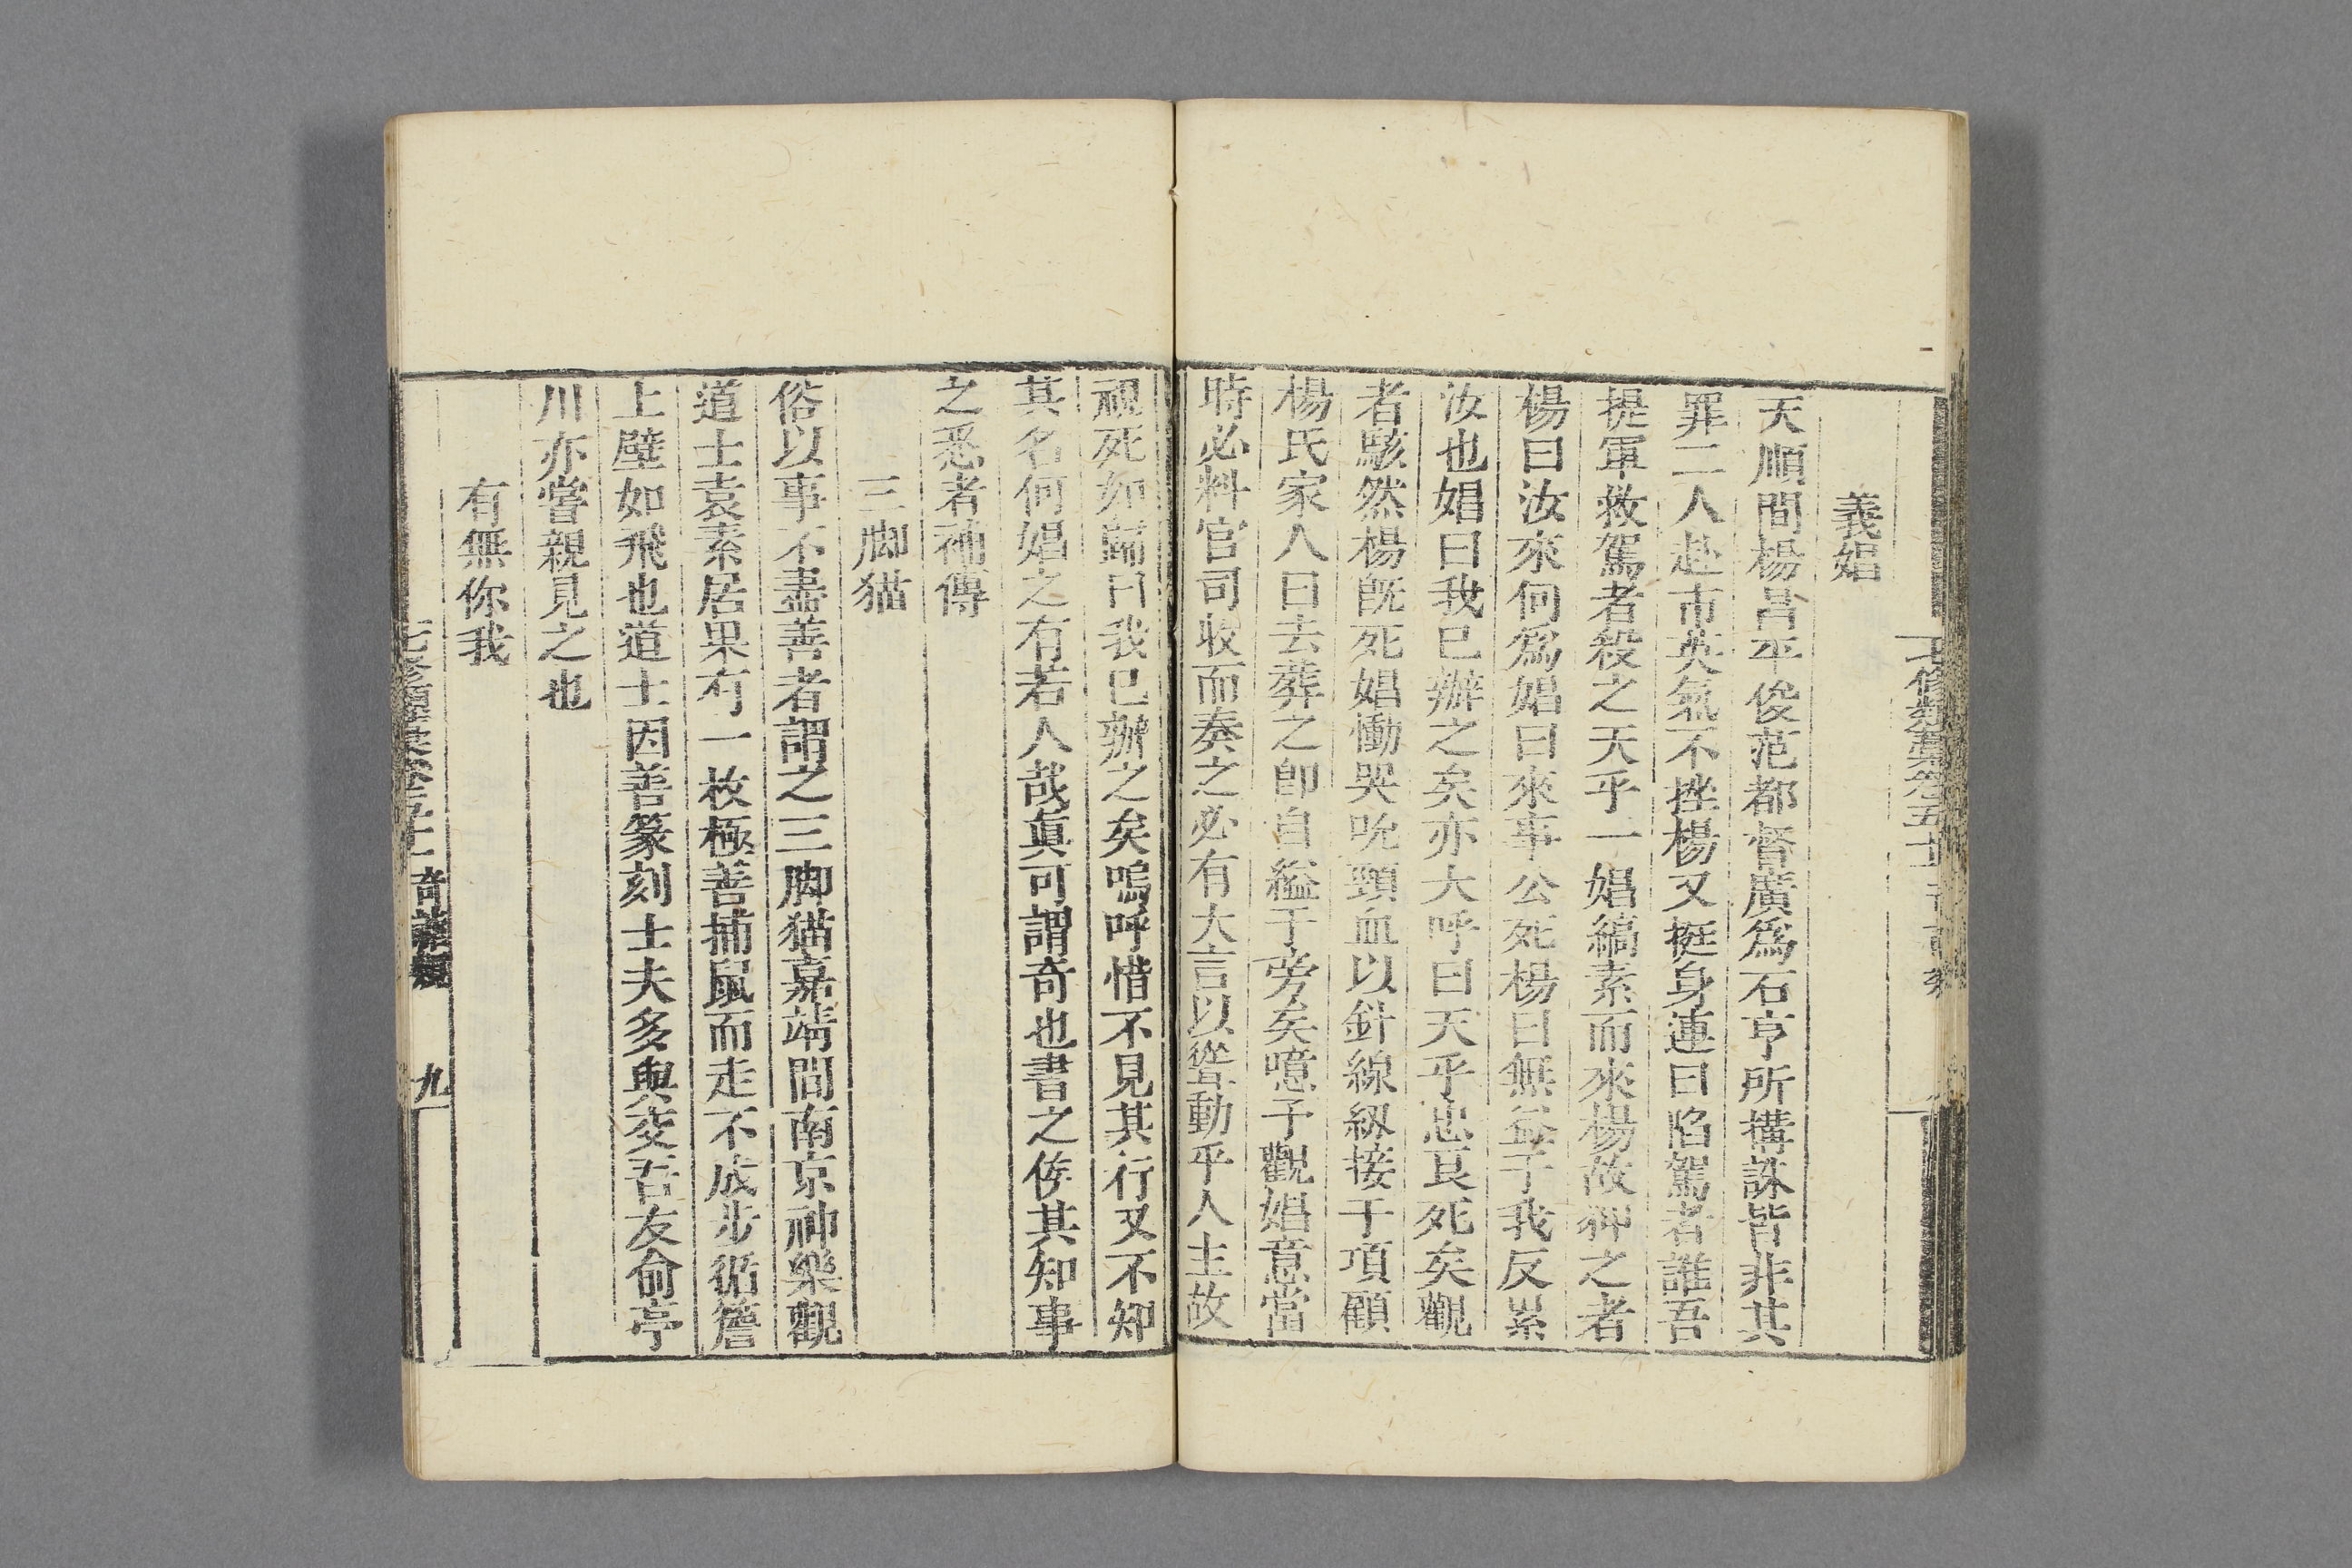 七修類藁卷五十
義娼
天順間楊昌平俊范都督廣爲石亨所搆誅皆非其
罪二人赴市英氣不挫楊又挺身連曰陷駕者誰吾
提軍救駕者殺之天乎一娼縞素而來楊故狎之者
楊曰汝來何爲娼曰來事公死楊曰無益于我反累
汝也娼曰我已辦之矣亦大呼曰天乎忠良死矣觀
者駭然楊既死娼慟哭吮頸血以針線紉接于項顧
楊氏家人曰去葬之卽自縊于旁矣噫予觀娼意當
時必料官司收而奏之必有大言以聳動乎人主故
視死如歸曰我已辦之矣嗚呼惜不見其行又不知
其名何娼之有若人哉眞可謂奇也書之俟其知事
之悉者補傳
三脚猫
俗以事不盡善者謂之三脚猫嘉靖間南京神樂觀
道士袁素居果有一枚極善捕鼠而走不成步循簷
上壁如飛也道士因善篆刻士夫多與交吾友俞亭
川亦嘗親見之也
有無你我
七修類藁卷五十 奇謔類 九